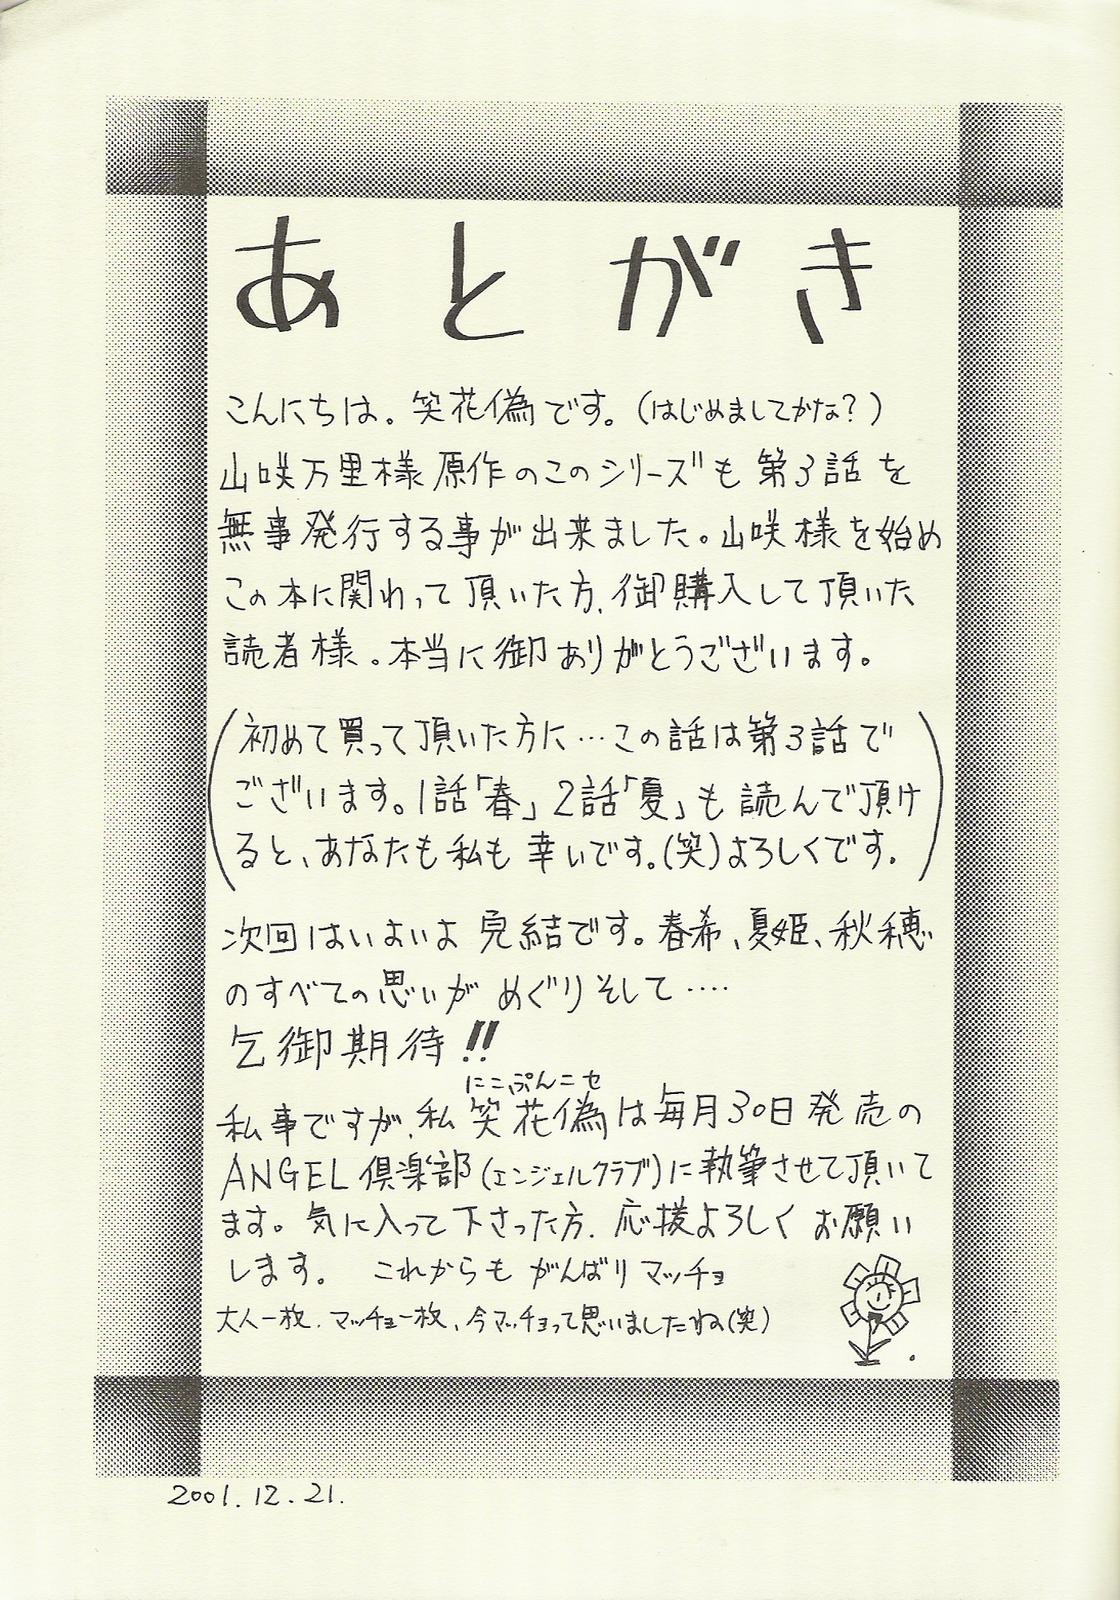 あとがき
こんにちは。笑花偽です。(はじめましてかな?)
山咲万里様原作のこのシリーズも第3話を
無事発行する事が出来ました。山咲様を始め
この本に関わって頂いた方、御購入して頂いた
読者様。本当に御ありがとうございます。
(初めて買って頂いた方に…この話は第3話で
ございます。1話「春」2話「夏」も読んで頂け
ると、あなたも私も幸いです。(笑)よろしくです。)
次回はいよいよ完結です。春希、夏姫、秋穂
のすべての思いがめぐりそして‥‥
乞御期待!!
にこぷんニセ
私事ですが、私笑花偽は毎月30日発売の
ANGEL倶楽部(エンジェルクラブ)に執筆させて頂いて
ます。気に入って下さった方、応援よろしくお願い
します。 これからもがんばりマッチョ
大人一枚、マッチョ一枚、今マッチョって思いましたね(笑)
2001.12.21.